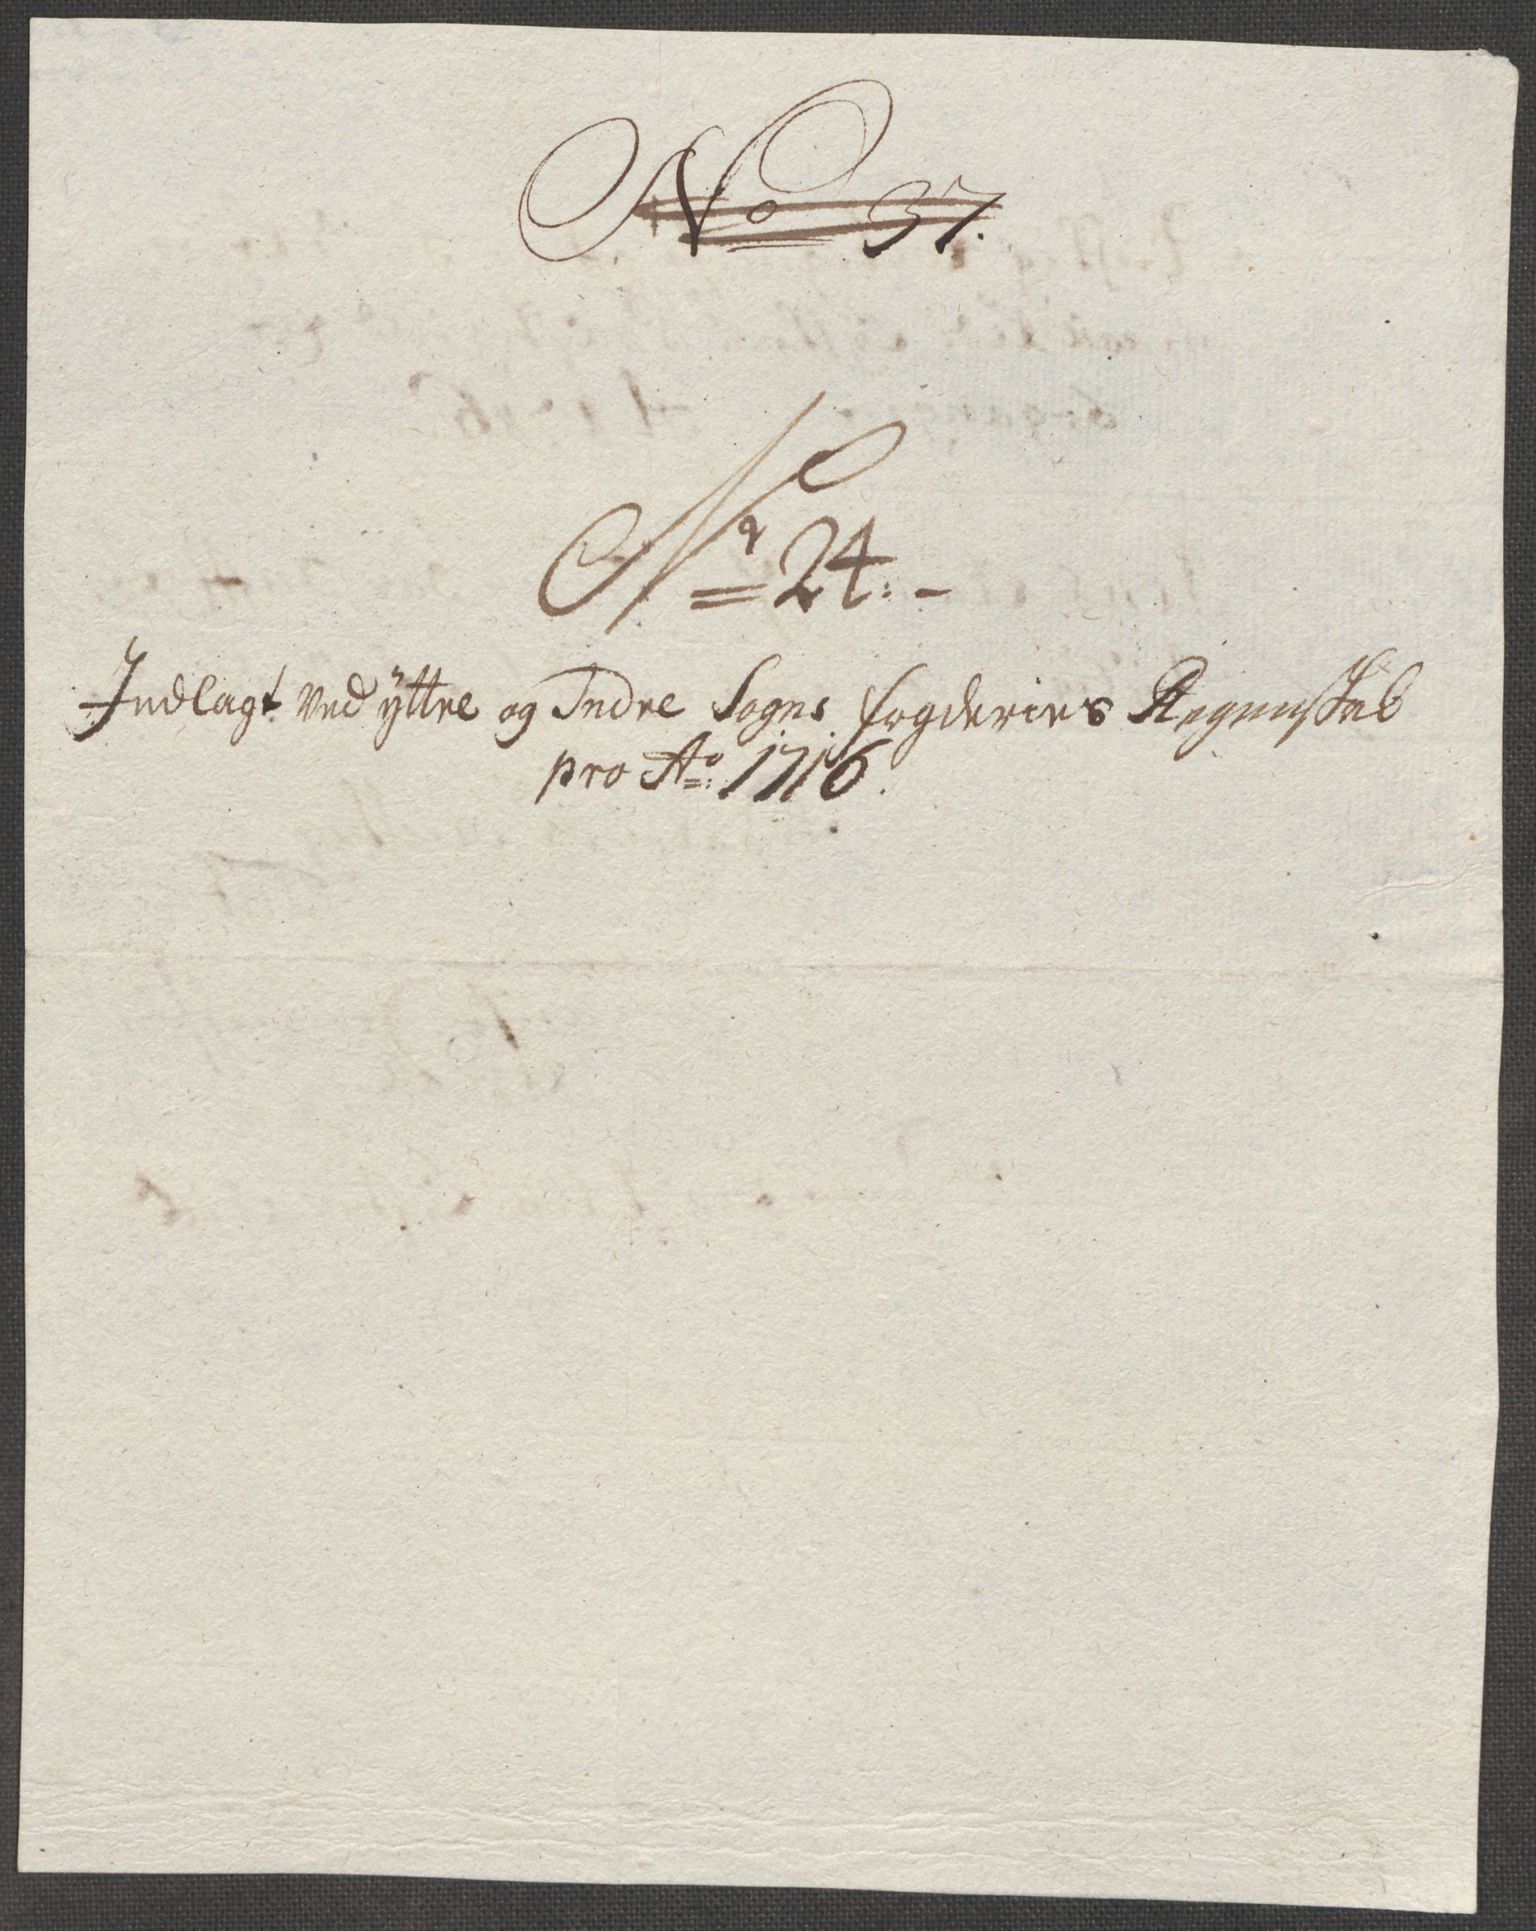 No 37.
Nr 24:-
Indlagt ved ÿttre og Indre Sogns fogderiers Regenskab
pro Ao: 1716.